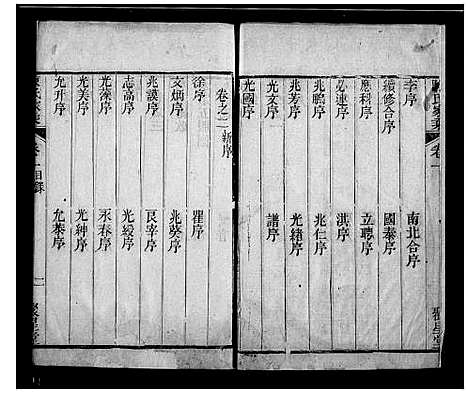 氏家乘 卷一
李序 南北合序
續修合序 國泰序
應科序 立聘序
必連序 淇序
兆鵬序 兆仁序
兆芳序 光緒序
光文序 譜序
光國序
卷之二 新序
徐序 瞿序
文炳序 兆葵序
兆謨序 良宰序
志高序 光綬序
光濚序 永春序
光美序 光紳序
允升序 允泰序
目錄